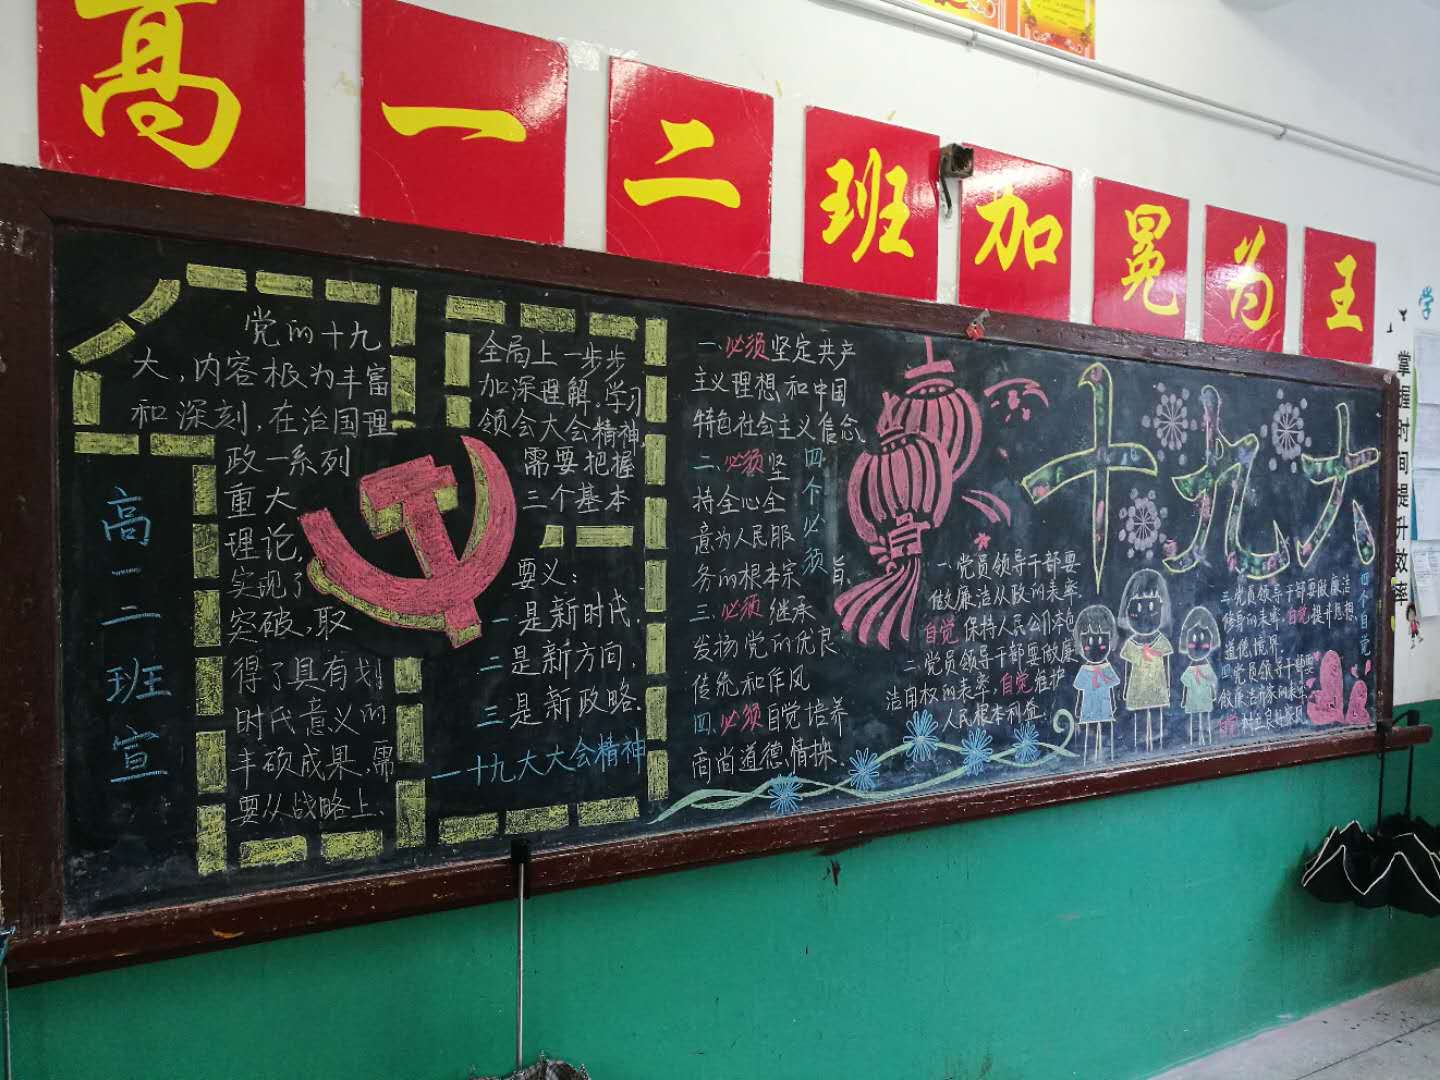 高一二班加冕为王
党的十九
大，内容极为丰富
和深刻，在治国理
政一系列
重大
理论，
实现了
突破，取
得了具有划
时代意义的
丰硕成果，需
要从战略上、
高一二班宣
全局上一步步
加深理解，学习
领会大会精神，
需要把握
三个基本
要义：
一是新时代，
二是新方向，
三是新政略.
一十九大大会精神
一.必须坚定共产
主义理想和中国
特色社会主义信念
二.必须坚
持全心全
意为人民服
务的根本宗旨.
三.必须继承
发扬党的优良
传统和作风
四.必须自觉培养
高尚道德情操.
四个必须
十九大
一.党员领导干部要
做廉洁从政的表率.
自觉保持人民公仆本色
二.党员领导干部要做廉
洁用权的表率,自觉维护
人民根本利益.
三.党员领导干部要做廉洁
修身的表率,自觉提升思想
道德境界.
四.党员领导干部要
做廉洁齐家的表率
四个自觉
学
掌握时间提升效率